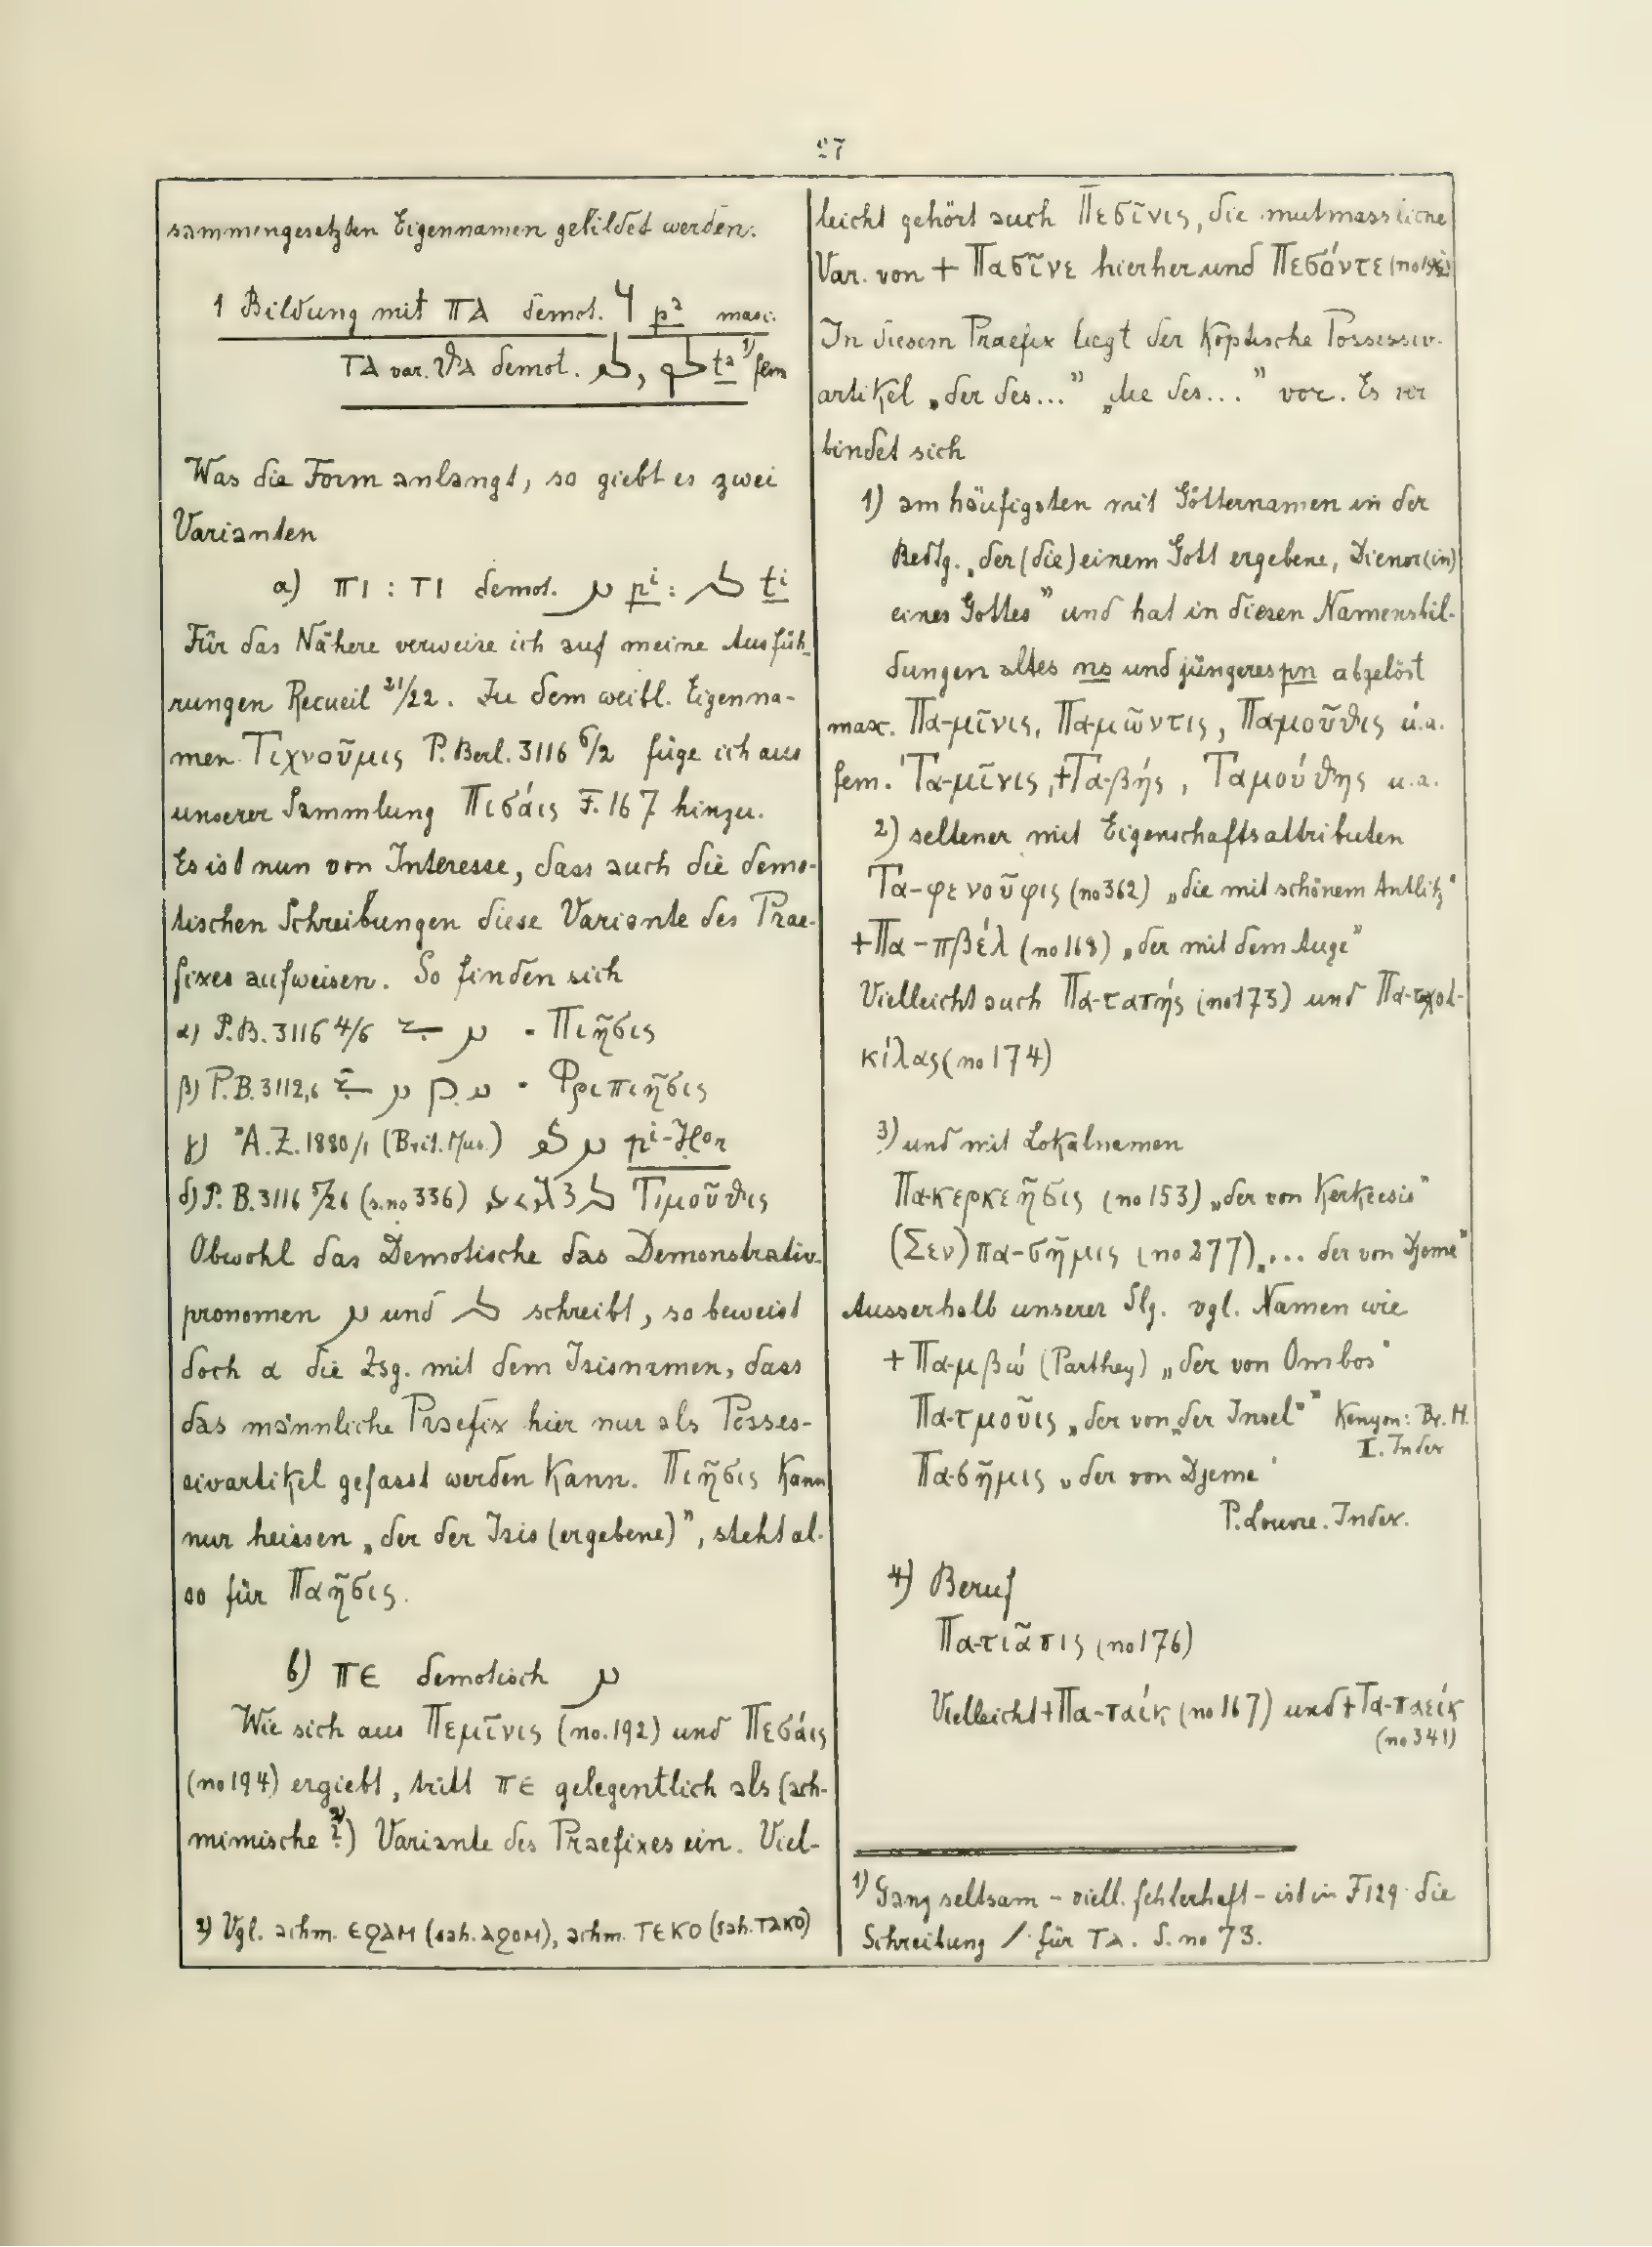 27
sammengesetzten Eigennamen gebildet werden.
1 Bildung mit ⲠⲀ demot. p² masc.
ⲦⲀ var. ϑⲀ demot. , t² ¹) fem
Was die Form anlangt, so giebt es zwei
Varianten
a) ⲠⲒ : ⲦⲒ demot. pⁱ : tⁱ
Für das Nähere verweise ich auf meine Ausfüh-
rungen Recueil 21/22. Zu dem weibl. Eigenna-
men Τιχνοῦμις P. Berl. 3116 6/2 füge ich aus
unserer Sammlung Πισάις F. 167 hinzu.
Es ist nun von Interesse, dass auch die demo-
tischen Schreibungen diese Variante des Prae-
fixes aufweisen. So finden sich
α) P.B. 3116 4/6 = Πιῆσις
β) P.B. 3112,6 = Φριπιῆσις
γ) A.Z. 1880/1 (Brit. Mus.) pⁱ-Ḥor
δ) P.B. 3116 5/26 (s. no 336) Τιμοῦϑις
Obwohl das Demotische das Demonstrativ-
pronomen und schreibt, so beweist
doch α die Zsg. mit dem Isisnamen, dass
das männliche Praefix hier nur als Posses-
sivartikel gefasst werden kann. Πιῆσις kann
nur heissen „der der Isis (ergebene)”, steht al-
so für Παῆσις.
b) ⲠⲈ demotisch
Wie sich aus Πεμῖνις (no. 192) und Πεσάις
(no 194) ergiebt, tritt ⲠⲈ gelegentlich als (ach-
mimische ?²)) Variante des Praefixes ein. Viel-
2) Vgl. achm. ⲈϨⲀⲘ (sah. ⲀϨⲞⲘ), achm. ⲦⲈⲔⲞ (sah. ⲦⲀⲔⲞ)
leicht gehört auch Πεσῖνις, die mutmassliche
Var. von + Πασῖνε hierher und Πεσάντε
In diesem Praefix liegt der Koptische Possessiv-
artikel „der des...” „die des...” vor. Es ver
bindet sich
1) am häufigsten mit Götternamen in der
Bedtg. „der (die) einem Gott ergebene, Diener(in)
eines Gottes” und hat in diesen Namensbil-
dungen altes ns und jüngeres pn abgelöst
masc. Πα-μῖνις, Παμῶντις, Παμοῦϑις u.a.
fem. Τα-μῖνις, +Τα-βής, Ταμούϑης u.a.
2) seltener mit Eigenschaftsattributen
Τα-φενοῦφις (no 362) „die mit schönem Antlitz”
+Πα-πβέλ (no 168) „der mit dem Auge”
Vielleicht auch Πα-τατής (no 173) und
κίλας (no 174)
3) und mit Lokalnamen
Πα-κερκεῆσις (no 153) „der von Kerkeesis”
(Σεν)πα-σῆμις (no 277) „... der von Djeme”
Ausserhalb unserer Slg. vgl. Namen wie
+ Πα-μβώ (Parthey) „der von Ombos”
Πα-τμοῦις „der von „der Insel”” Kenyon: Br. M.
I. Index
Πα-σῆμις „der von Djeme”
P. Louvre. Index.
4) Beruf
Πα-τιᾶπις (no 176)
Vielleicht + Πα-παίκ (no 167) und + Τα-παείκ
(no 341)
1) Ganz seltsam - viell. fehlerhaft - ist in F 129 die
Schreibung / für ⲦⲀ. S. no 73.